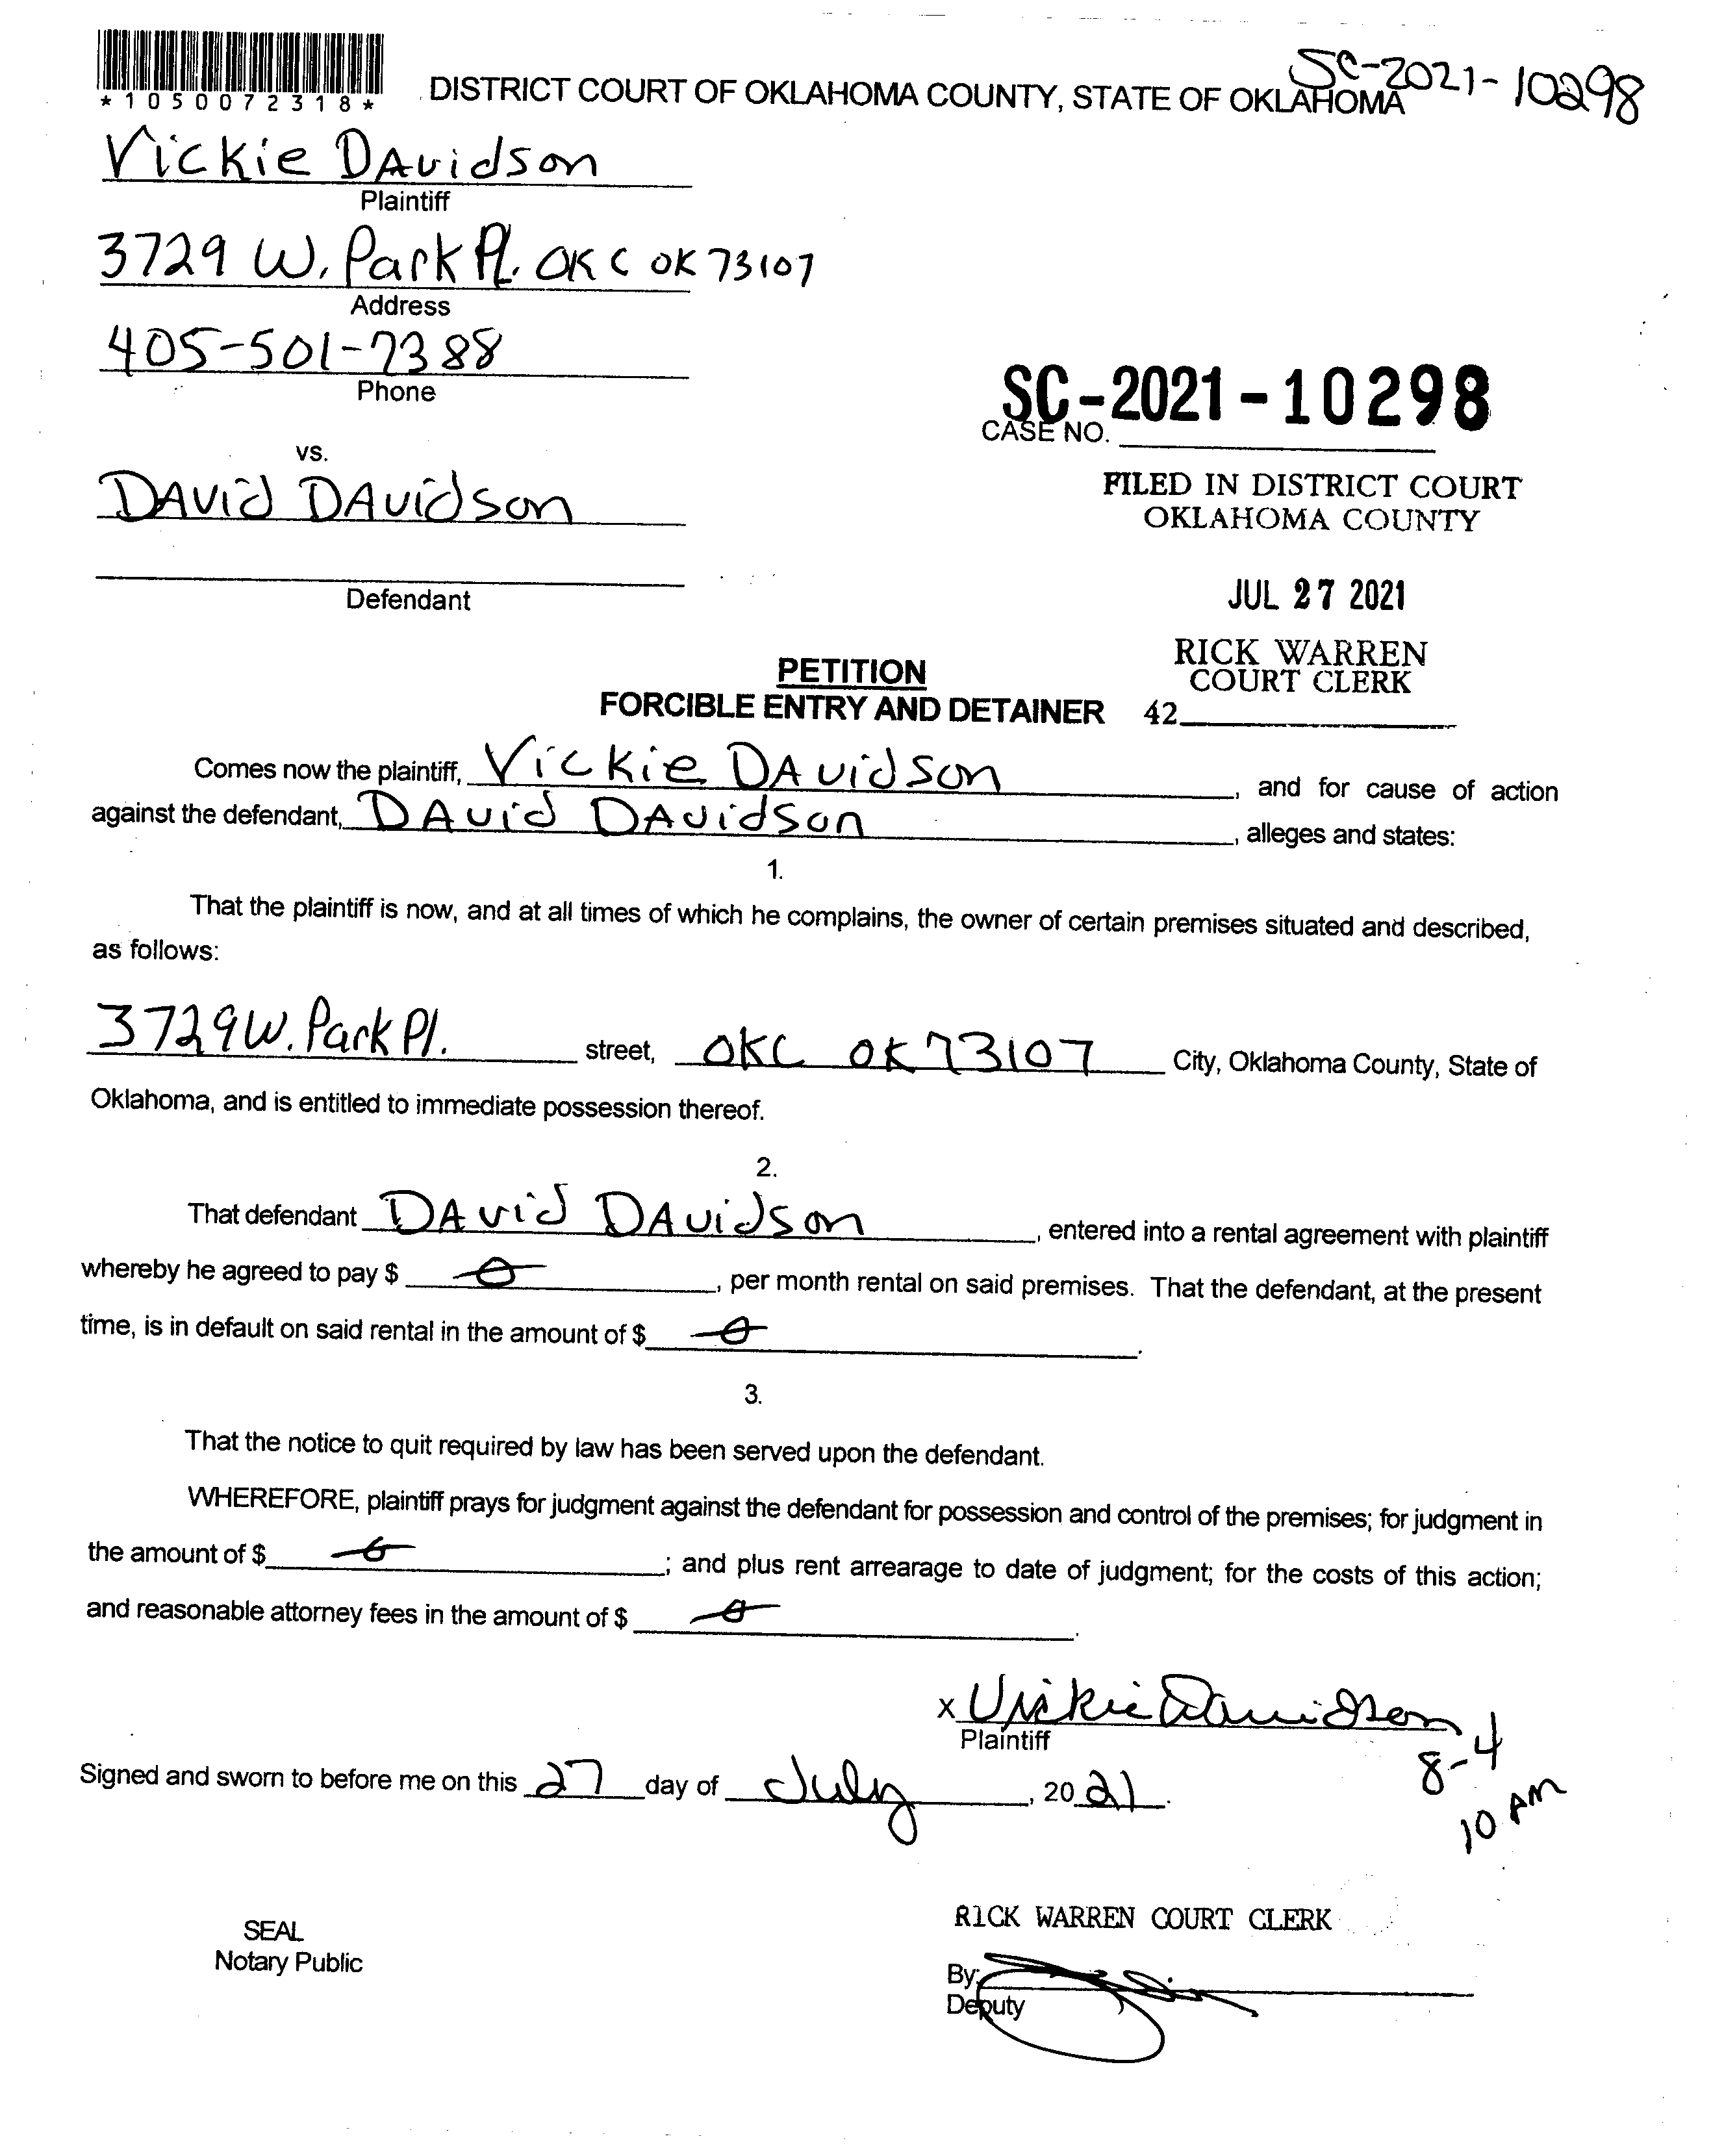 *1050072318*
DISTRICT COURT OF OKLAHOMA COUNTY, STATE OF OKLAHOMA
SC-2021-10298
Vickie DAvidson
Plaintiff
3729 W. Park Pl. OKC OK 73107
Address
405-501-7388
Phone
SC-2021-10298
CASE NO.
vs.
DAvid DAvidson
FILED IN DISTRICT COURT
OKLAHOMA COUNTY
Defendant
JUL 27 2021
RICK WARREN
COURT CLERK
PETITION
FORCIBLE ENTRY AND DETAINER 42
Comes now the plaintiff, Vickie DAvidson, and for cause of action
against the defendant, DAvid DAvidson, alleges and states:
1.
That the plaintiff is now, and at all times of which he complains, the owner of certain premises situated and described,
as follows:
3729 W. Park Pl. street, OKC OK 73107 City, Oklahoma County, State of
Oklahoma, and is entitled to immediate possession thereof.
2.
That defendant DAvid DAvidson, entered into a rental agreement with plaintiff
whereby he agreed to pay $ 0, per month rental on said premises. That the defendant, at the present
time, is in default on said rental in the amount of $ 0.
3.
That the notice to quit required by law has been served upon the defendant.
WHEREFORE, plaintiff prays for judgment against the defendant for possession and control of the premises; for judgment in
the amount of $ 0; and plus rent arrearage to date of judgment; for the costs of this action;
and reasonable attorney fees in the amount of $ 0.
x Vickie Davidson
Plaintiff
8-4
10 AM
Signed and sworn to before me on this 27 day of July, 2021.
SEAL
Notary Public
RICK WARREN COURT CLERK
By:
Deputy